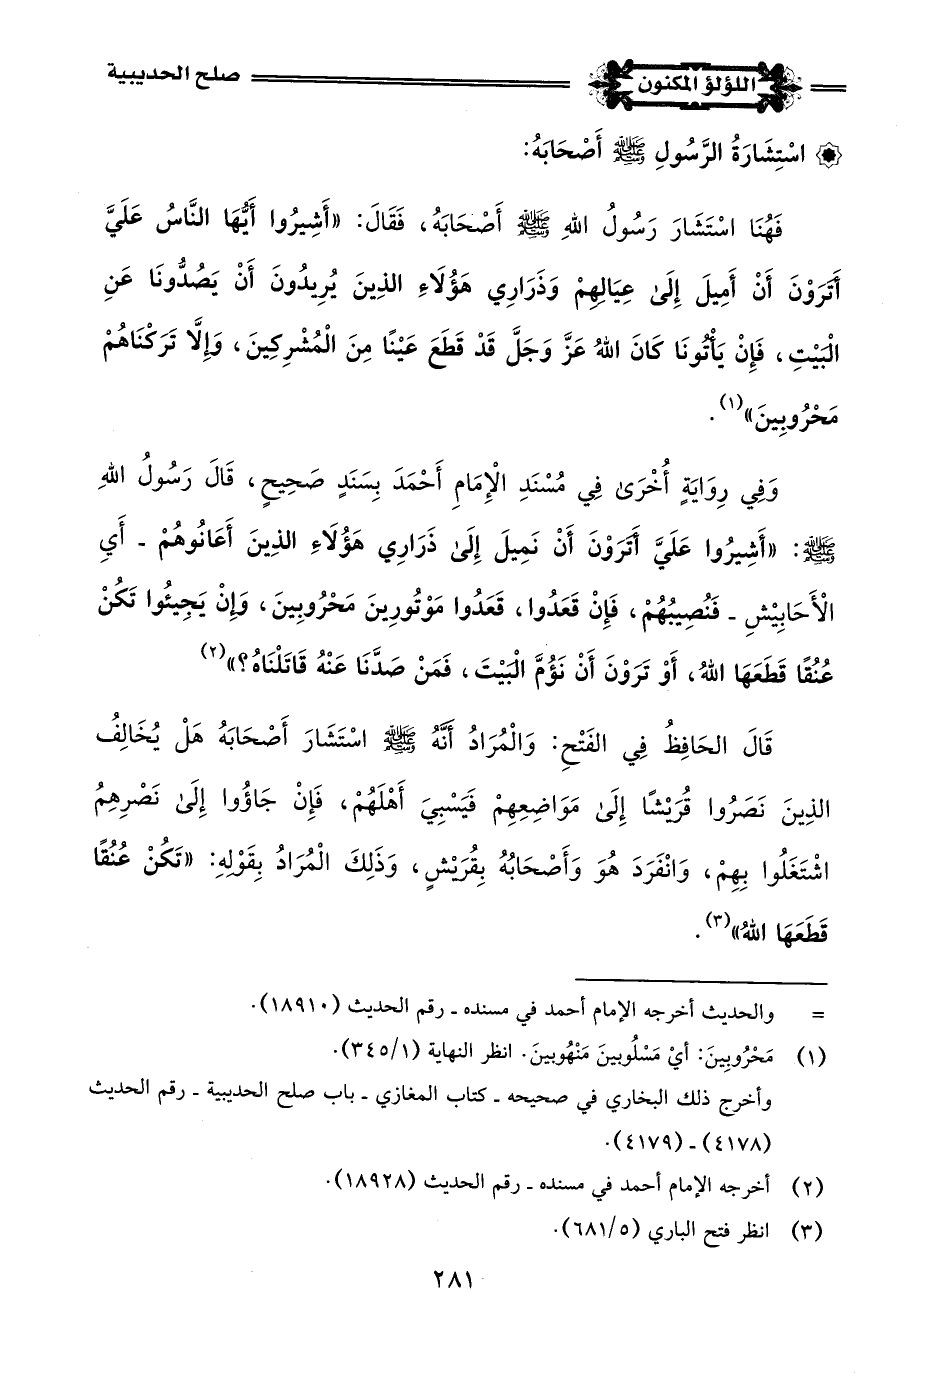 اللؤلؤ المكنون
صلح الحديبية
اسْتِشَارَةُ الرَّسُولِ ﷺ أَصْحَابَهُ:
فَهُنَا اسْتَشَارَ رَسُولُ اللهِ ﷺ أَصْحَابَهُ، فَقَالَ: «أَشِيرُوا أَيُّهَا النَّاسُ عَلَيَّ
أَتَرَوْنَ أَنْ أَمِيلَ إِلَىٰ عِيَالِهِمْ وَذَرَارِي هَؤُلَاءِ الذِينَ يُرِيدُونَ أَنْ يَصُدُّونَا عَنِ
الْبَيْتِ، فَإِنْ يَأْتُونَا كَانَ اللهُ عَزَّ وَجَلَّ قَدْ قَطَعَ عَيْنًا مِنَ الْمُشْرِكِينَ، وَإِلَّا تَرَكْنَاهُمْ
مَحْرُوبِينَ»(١).
وَفِي رِوَايَةٍ أُخْرَىٰ فِي مُسْنَدِ الْإِمَامِ أَحْمَدَ بِسَنَدٍ صَحِيحٍ، قَالَ رَسُولُ اللهِ
ﷺ: «أَشِيرُوا عَلَيَّ أَتَرَوْنَ أَنْ نَمِيلَ إِلَىٰ ذَرَارِي هَؤُلَاءِ الذِينَ أَعَانُوهُمْ ـ أَيِ
الْأَحَابِيْشِ ـ فَنُصِيبُهُمْ، فَإِنْ قَعَدُوا، قَعَدُوا مَوْتُورِينَ مَحْرُوبِينَ، وَإِنْ يَجِيئُوا تَكُنْ
عُنُقًا قَطَعَهَا اللهُ، أَوْ تَرَوْنَ أَنْ نَؤُمَّ الْبَيْتَ، فَمَنْ صَدَّنَا عَنْهُ قَاتَلْنَاهُ؟»(٢)
قَالَ الحَافِظُ فِي الفَتْحِ: وَالْمُرَادُ أَنَّهُ ﷺ اسْتَشَارَ أَصْحَابَهُ هَلْ يُخَالِفُ
الذِينَ نَصَرُوا قُرَيْشًا إِلَىٰ مَوَاضِعِهِمْ فَيَسْبِيَ أَهْلَهُمْ، فَإِنْ جَاؤُوا إِلَىٰ نَصْرِهِمُ
اشْتَغَلُوا بِهِمْ، وَانْفَرَدَ هُوَ وَأَصْحَابُهُ بِقُرَيْشٍ، وَذَلِكَ الْمُرَادُ بِقَوْلِهِ: «تَكُنْ عُنُقًا
قَطَعَهَا اللهُ»(٣).
= والحديث أخرجه الإمام أحمد في مسنده ـ رقم الحديث (١٨٩١٠).
(١) مَحْرُوبِينَ: أيْ مَسْلُوبينَ مَنْهُوبِينَ. انظر النهاية (٣٤٥/١).
وأخرج ذلك البخاري في صحيحه ـ كتاب المغازي ـ باب صلح الحديبية ـ رقم الحديث
(٤١٧٨) ـ (٤١٧٩).
(٢) أخرجه الإمام أحمد في مسنده ـ رقم الحديث (١٨٩٢٨).
(٣) انظر فتح الباري (٦٨١/٥).
٢٨١